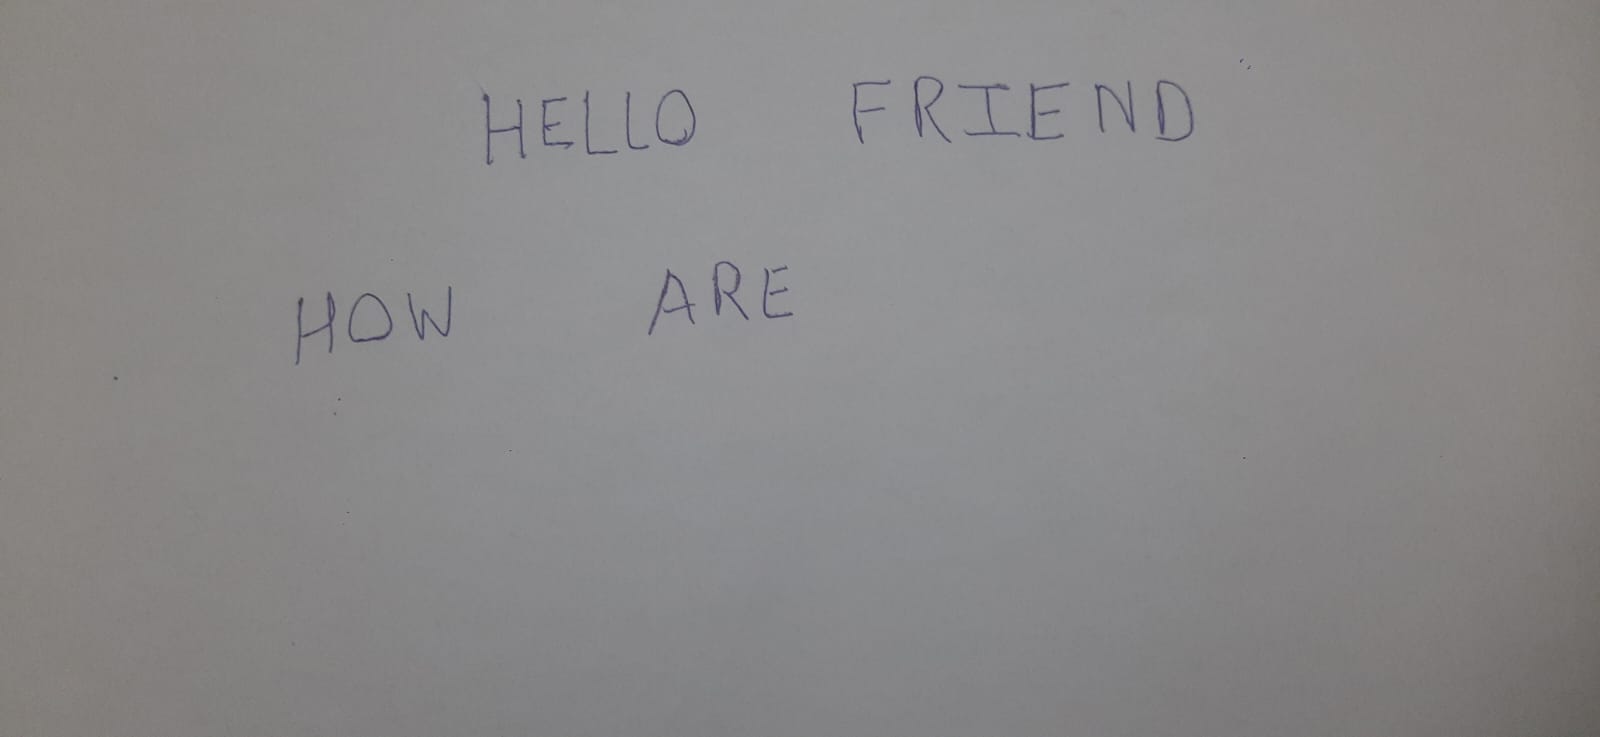 HELLO FRIEND
HOW ARE